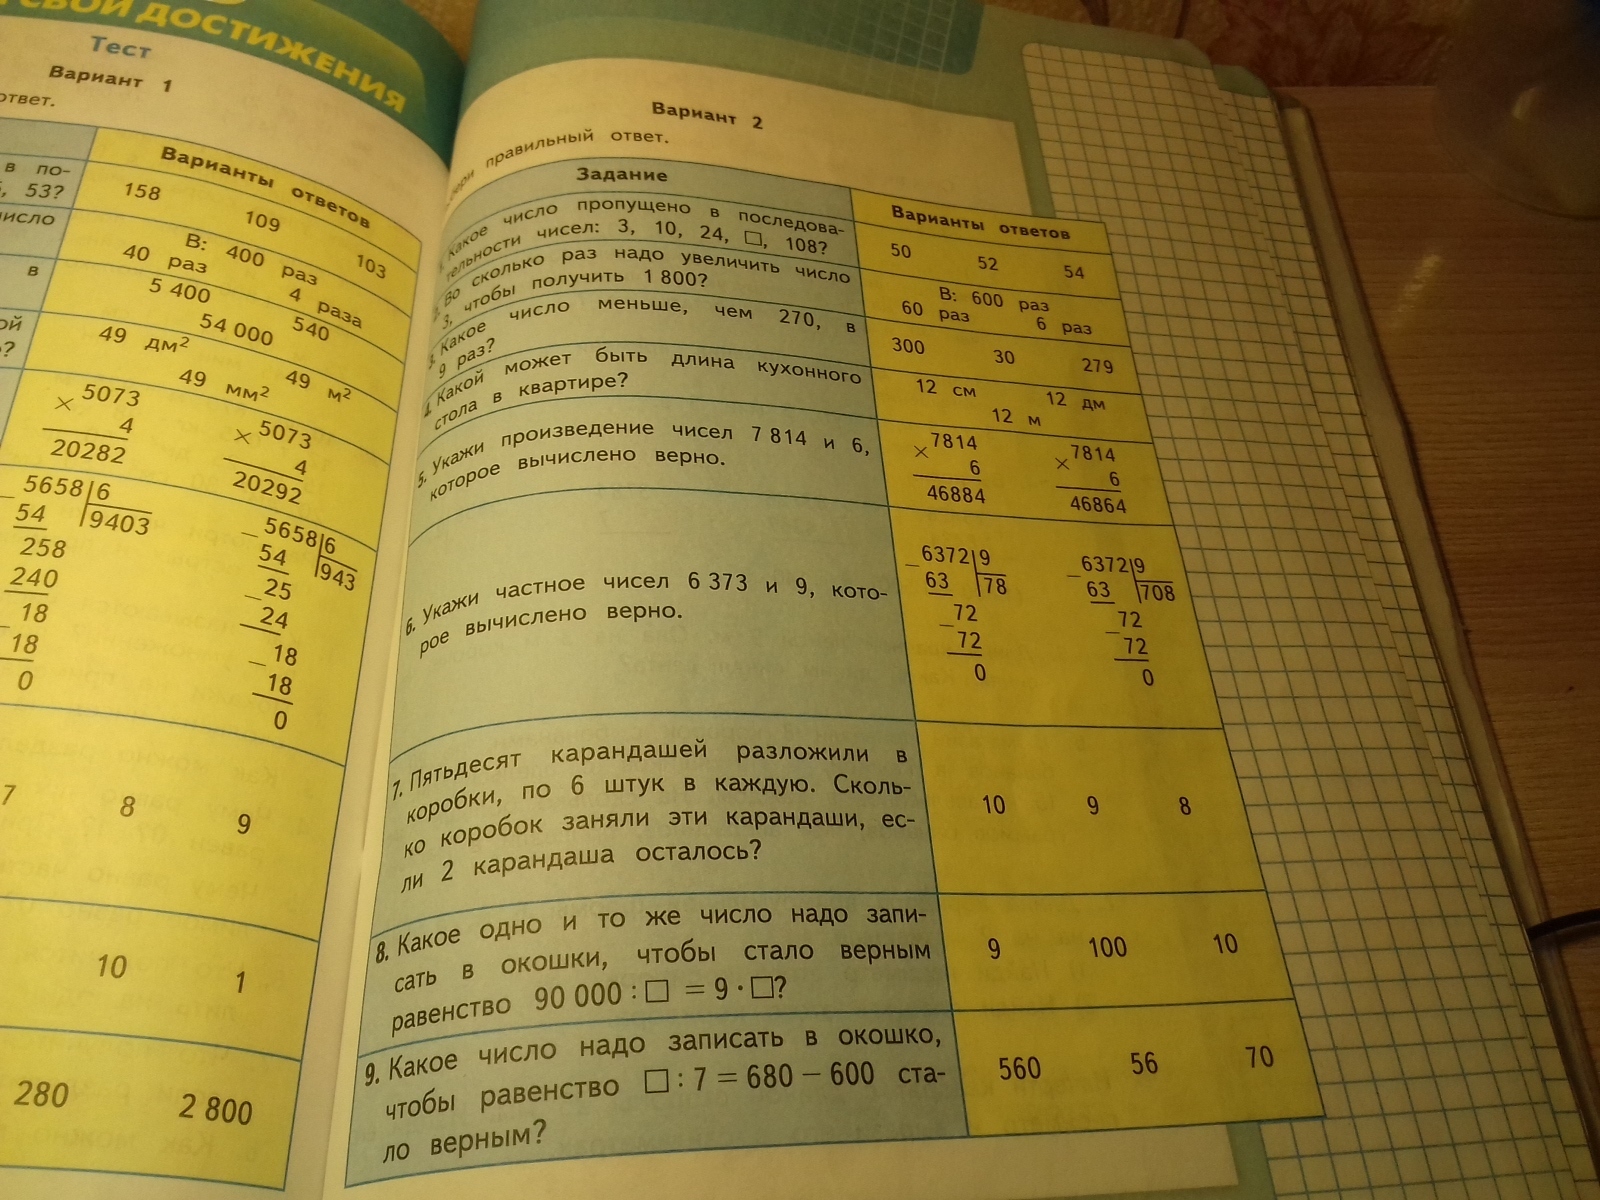 СВОИ ДОСТИЖЕНИЯ
Тест
Вариант 1
ответ.
Варианты ответов
в по-
53?
158 109 103
число
В: 400 раз
40 раз 4 раза
в
5 400 54 000 540
49 дм² 49 мм² 49 м²
× 5073
4
20282
× 5073
4
20292
5658 6
54 9403
258
240
18
18
0
5658 6
54 943
25
24
18
18
0
7 8 9
10 1
280 2 800
Вариант 2
правильный ответ.
Задание
Варианты ответов
Какое число пропущено в последова-
тельности чисел: 3, 10, 24, □, 108?
50 52 54
Во сколько раз надо увеличить число
3, чтобы получить 1 800?
В: 600 раз
60 раз 6 раз
3. Какое число меньше, чем 270, в
9 раз?
300 30 279
4. Какой может быть длина кухонного
стола в квартире?
12 см 12 дм
12 м
5. Укажи произведение чисел 7 814 и 6,
которое вычислено верно.
× 7814
6
46884
× 7814
6
46864
6. Укажи частное чисел 6 373 и 9, кото-
рое вычислено верно.
6372 9
63 78
72
72
0
6372 9
63 708
72
72
0
7. Пятьдесят карандашей разложили в
коробки, по 6 штук в каждую. Сколь-
ко коробок заняли эти карандаши, ес-
ли 2 карандаша осталось?
10 9 8
8. Какое одно и то же число надо запи-
сать в окошки, чтобы стало верным
равенство 90 000 : □ = 9 · □?
9 100 10
9. Какое число надо записать в окошко,
чтобы равенство □ : 7 = 680 − 600 ста-
ло верным?
560 56 70